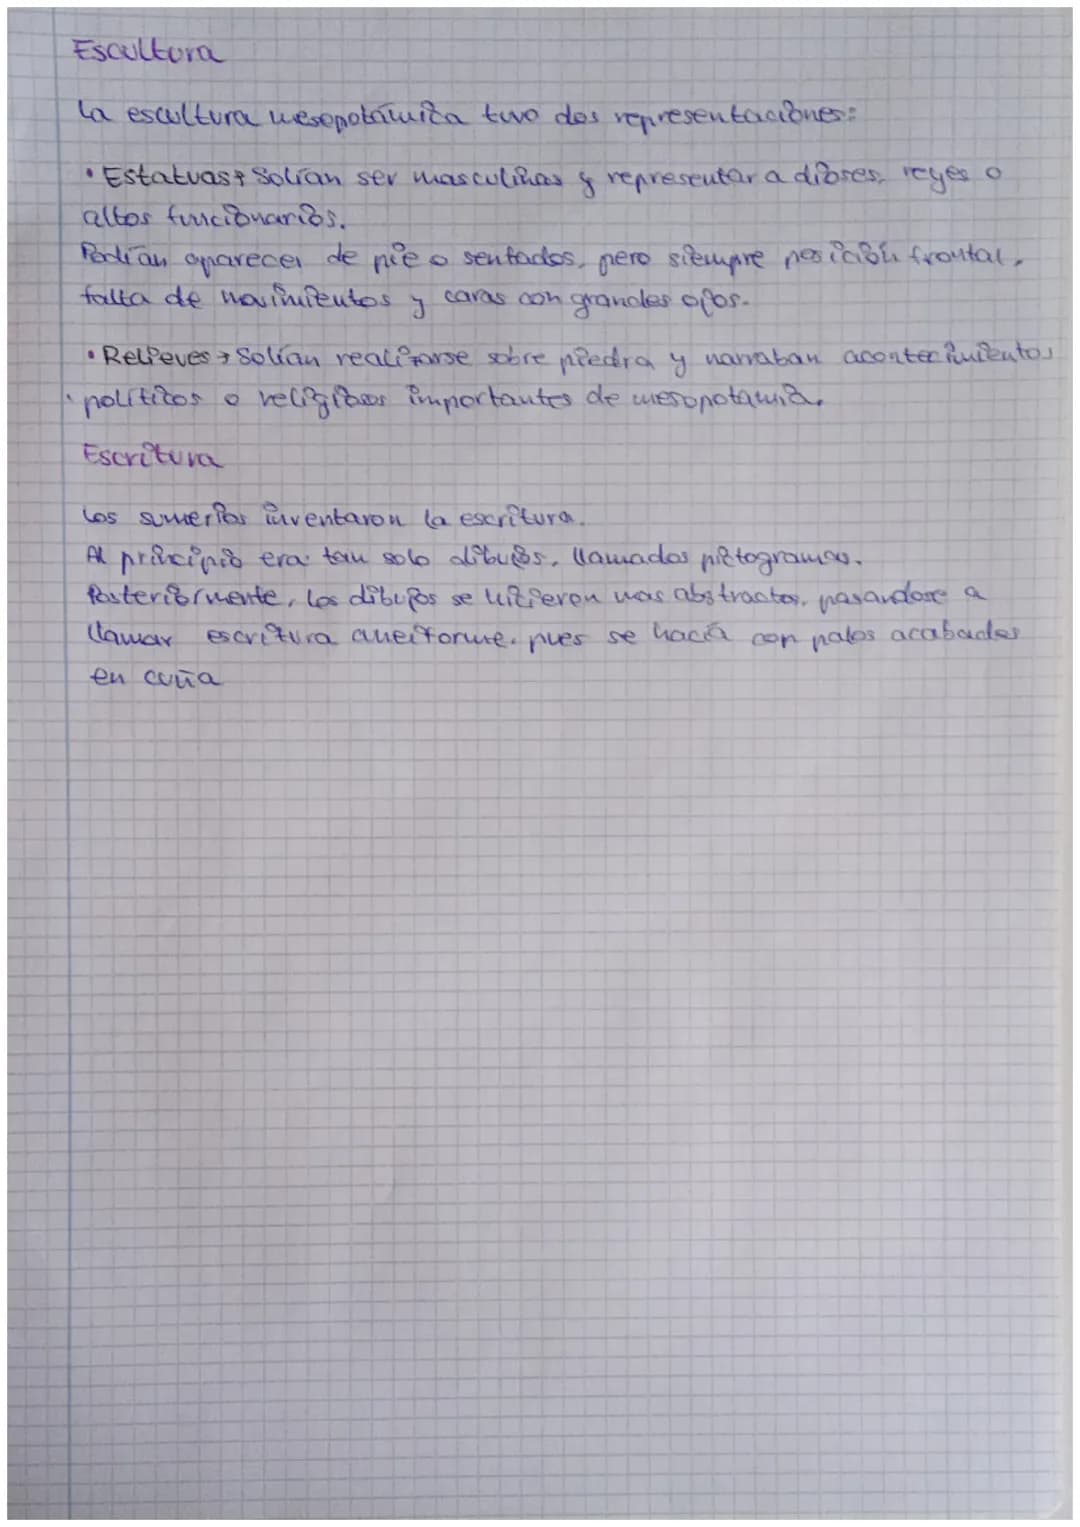 Escultura
La escultura mesopotámica tuvo dos representaciones:
• Estatuas → Solían ser masculinas y representar a dioses, reyes o
altos funcionarios.
Podían aparecer de pie o sentados, pero siempre posición frontal,
falta de movimientos y caras con grandes ojos.
• Relieves → Solían realizarse sobre piedra y narraban acontecimientos
políticos o religiosos importantes de mesopotamia.
Escritura
Los sumerios inventaron la escritura.
Al principio era tan solo dibujos, llamados pictogramas.
Posteriormente, los dibujos se hicieron mas abstractos, pasandose a
llamar escritura cuneiforme, pues se hacía con palos acabados
en cuña